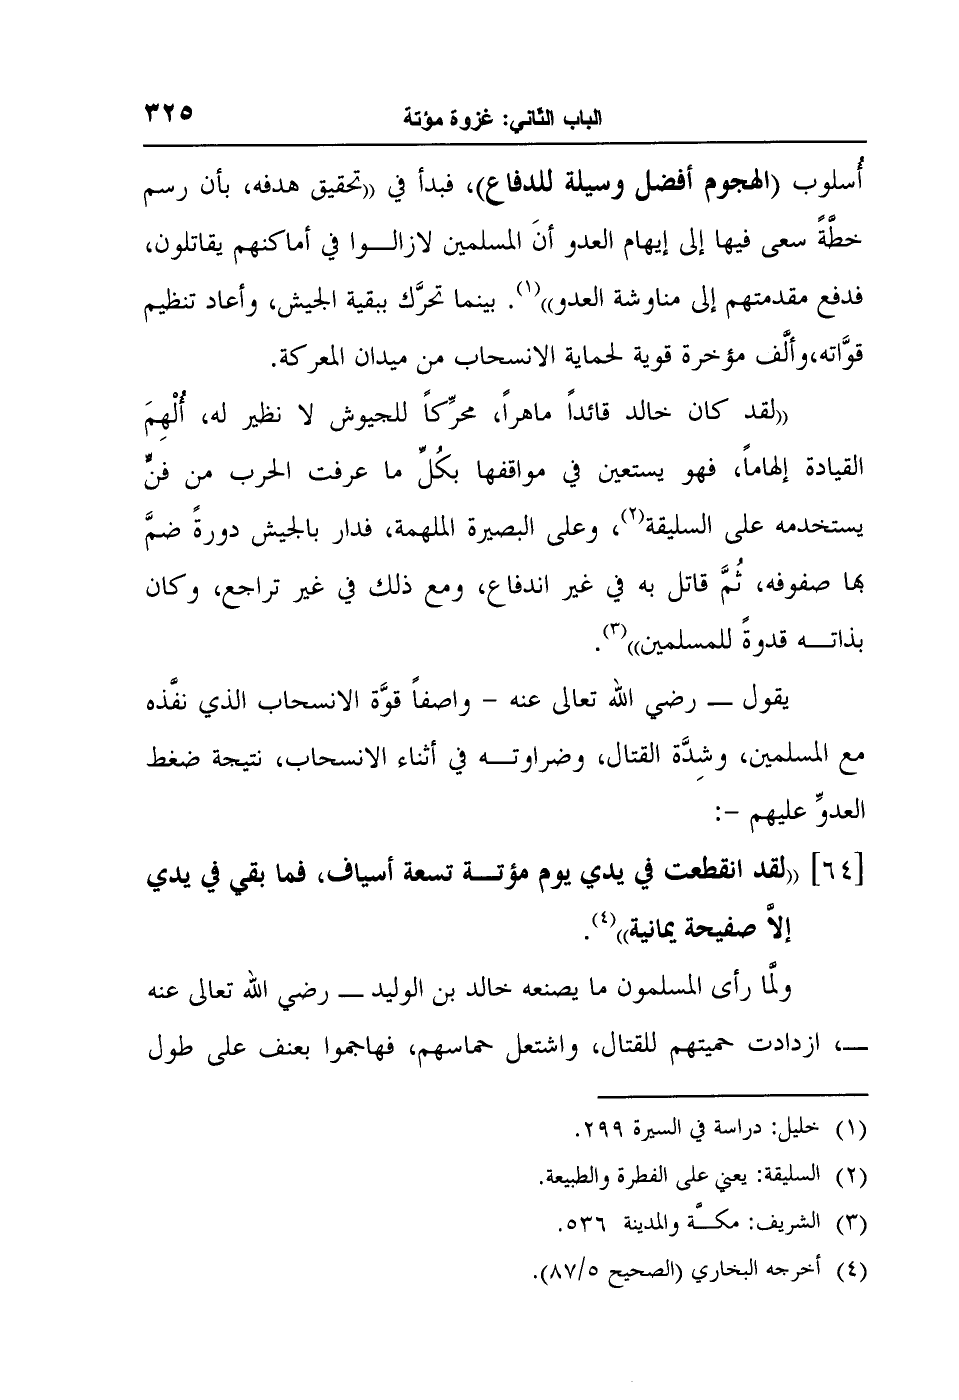 الباب الثاني: غزوة مؤتة
٣٢٥
أُسلوب (الهجوم أفضل وسيلة للدفاع)، فبدأ في ((تحقيق هدفه، بأن رسم
خطَّةً سعى فيها إلى إيهام العدو أنَ المسلمين لازالـــوا في أماكنهم يقاتلون،
فدفع مقدمتهم إلى مناوشة العدو))(١). بينما تحرَّك ببقية الجيش، وأعاد تنظيم
قوَّاته،وألَّف مؤخرة قوية لحماية الانسحاب من ميدان المعركة.
((لقد كان خالد قائداً ماهراً، محرِّكاً للجيوش لا نظير له، أُلْهِمَ
القيادة إلهاماً، فهو يستعين في مواقفها بكُلِّ ما عرفت الحرب من فنٍّ
يستخدمه على السليقة(٢)، وعلى البصيرة الملهمة، فدار بالجيش دورةً ضمَّ
بها صفوفه، ثُمَّ قاتل به في غير اندفاع، ومع ذلك في غير تراجع، وكان
بذاتـــه قدوةً للمسلمين))(٣).
يقول ـــ رضي الله تعالى عنه – واصفاً قوَّة الانسحاب الذي نفَّذه
مع المسلمين، وشِدَّة القتال، وضراوتـــه في أثناء الانسحاب، نتيجة ضغط
العدوِّ عليهم –:
[٦٤] ((لقد انقطعت في يدي يوم مؤتـــة تسعة أسياف، فما بقي في يدي
إلاَّ صفيحة يمانية))(٤).
ولَّما رأى المسلمون ما يصنعه خالد بن الوليد ـــ رضي الله تعالى عنه
ـــ، ازدادت حميتهم للقتال، واشتعل حماسهم، فهاجموا بعنف على طول
(١) خليل: دراسة في السيرة ٢٩٩.
(٢) السليقة: يعني على الفطرة والطبيعة.
(٣) الشريف: مكـــَّة والمدينة ٥٣٦.
(٤) أخرجه البخاري (الصحيح ٨٧/٥).